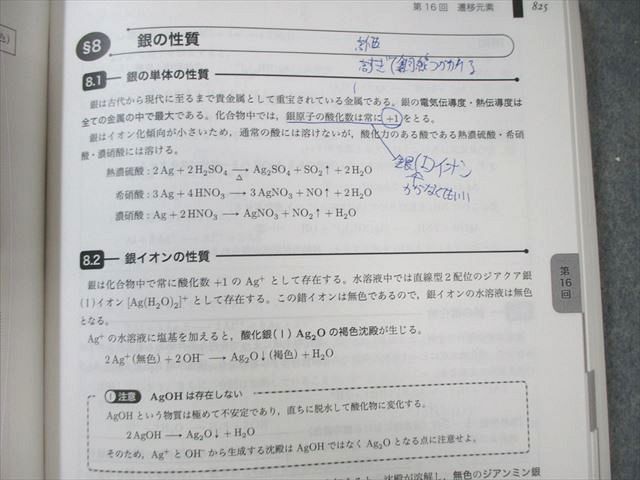 第16回 遷移元素 825
§8 銀の性質
8.1 銀の単体の性質
銀は古代から現代に至るまで貴金属として重宝されている金属である。銀の電気伝導度・熱伝導度は
全ての金属の中で最大である。化合物中では，銀原子の酸化数は常に+1をとる。
銀はイオン化傾向が小さいため，通常の酸には溶けないが，酸化力のある酸である熱濃硫酸・希硝
酸・濃硝酸には溶ける。
銀(I)イオン
かかなくてもいい
熱濃硫酸：2Ag + 2H₂SO₄ ⟶ Ag₂SO₄ + SO₂↑ + 2H₂O
△
希硝酸：3Ag + 4HNO₃ ⟶ 3AgNO₃ + NO↑ + 2H₂O
濃硝酸：Ag + 2HNO₃ ⟶ AgNO₃ + NO₂↑ + H₂O
8.2 銀イオンの性質
銀は化合物中で常に酸化数 +1 の Ag⁺ として存在する。水溶液中では直線型2配位のジアクア銀
(I)イオン [Ag(H₂O)₂]⁺ として存在する。この錯イオンは無色であるので，銀イオンの水溶液は無色
となる。
Ag⁺ の水溶液に塩基を加えると，酸化銀(I) Ag₂O の褐色沈殿が生じる。
2Ag⁺(無色) + 2OH⁻ ⟶ Ag₂O↓(褐色) + H₂O
注意 AgOH は存在しない
AgOH という物質は極めて不安定であり，直ちに脱水して酸化物に変化する。
2AgOH ⟶ Ag₂O↓ + H₂O
そのため，Ag⁺ と OH⁻ から生成する沈殿は AgOH ではなく Ag₂O となる点に注意せよ。
第16回
沈殿が溶解し，無色のジアンミン銀